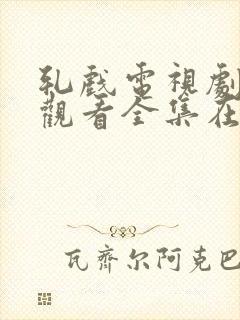 乳戲電視劇
觀看全集在
瓦齊尔阿克巴